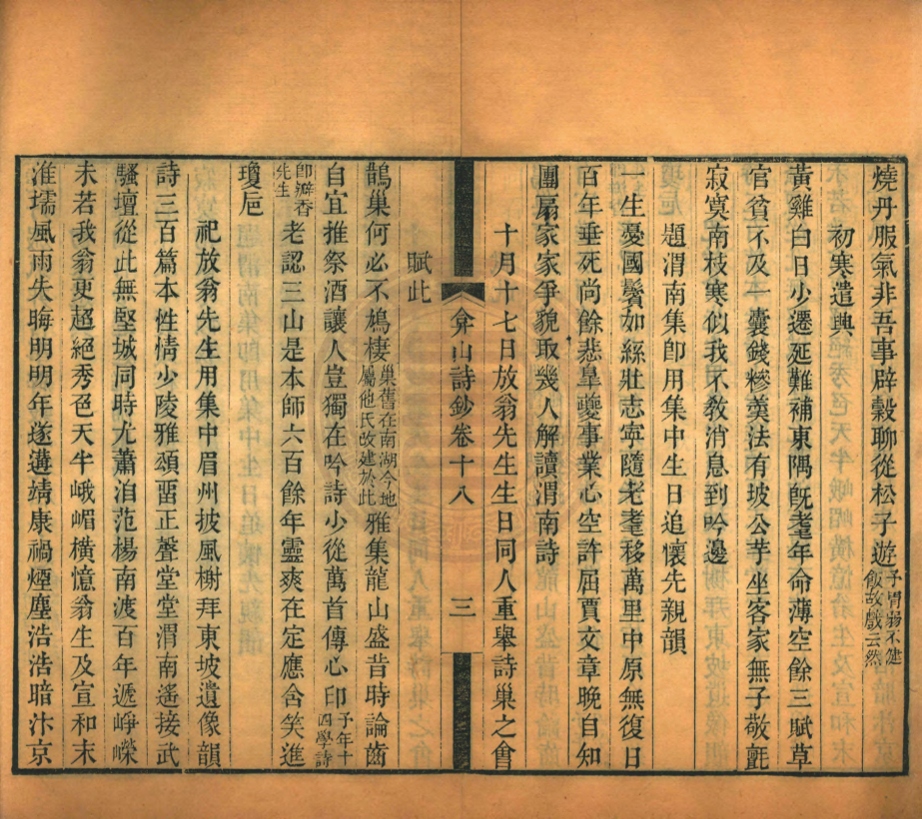 燒丹服氣非吾事辟穀聊從松子遊予胃弱不健飯故戲云然
初寒遣興
黃雞白日少遷延難補東隅旣耄年命薄空餘三賦草
官貧不及一囊錢糝羮法有坡公芋坐客家無子敬氈
寂寞南枝寒似我不敎消息到吟邊
題渭南集卽用集中生日追懷先親韻
一生憂國鬢如絲壯志寧隨老耄移萬里中原無復日
百年垂死尚餘悲臯夔事業心空許屈賈文章晚自知
團扇家家爭貌取幾人解讀渭南詩
十月十七日放翁先生生日同人重舉詩巢之會
弇山詩鈔卷十八
三
賦此
鵲巢何必不鳩棲巢舊在南湖今地屬他氏改建於此雅集龍山盛昔時論齒
自宜推祭酒讓人豈獨在吟詩少從萬首傳心印予年十四學詩
卽瓣香先生老認三山是本師六百餘年靈爽在定應含笑進
瓊卮
祀放翁先生用集中眉州披風榭拜東坡遺像韻
詩三百篇本性情少陵雅頌畱正聲堂堂渭南遙接武
騷壇從此無堅城同時尤蕭洎范楊南渡百年遞崢嶸
未若我翁更超絕秀色天半峨嵋橫憶翁生及宣和末
淮壖風雨失晦明明年遂遘靖康禍煙塵浩浩暗汴京